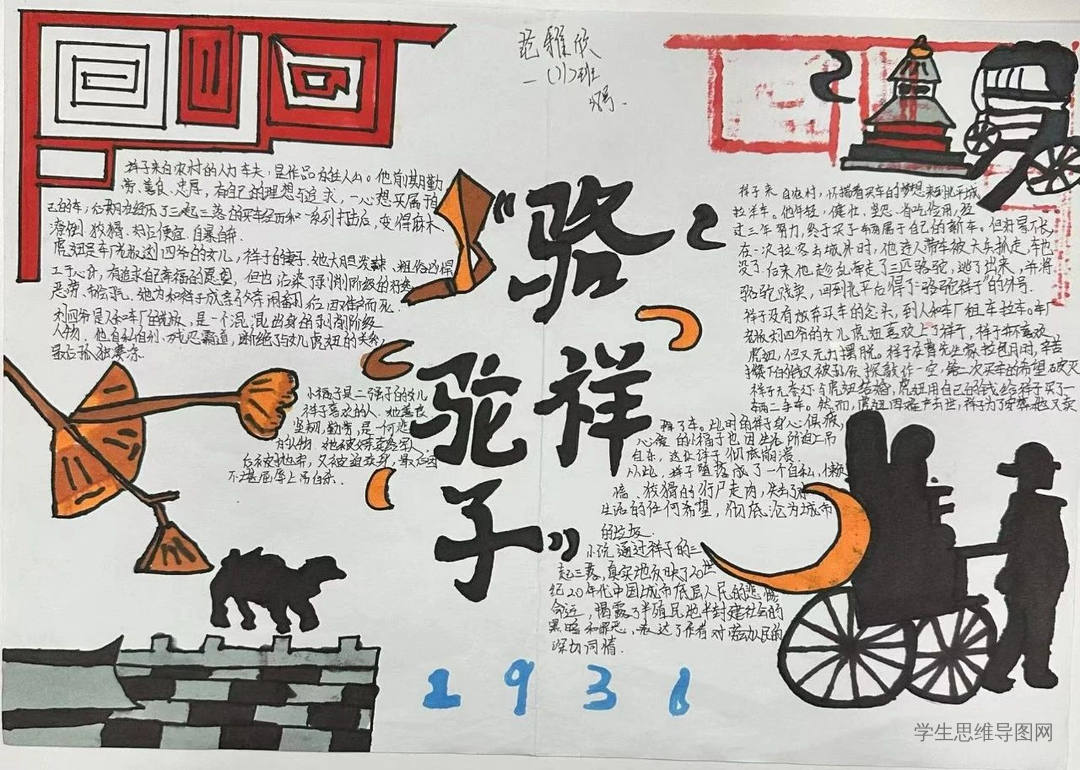 范雅欣
一(1)班
骆
驼祥
子
祥子来自农村的人力车夫,是作品的主人公。他前期勤
劳、善良、忠厚,有自己的理想与追求,一心想买属于自
己的车;后期在经历了三起三落的买车经历和一系列打击后,变得麻木、
潦倒、狡猾、好占便宜、自暴自弃。
虎妞是车厂老板刘四爷的女儿,祥子的妻子。她大胆泼辣、粗俗凶悍
工于心计,有追求自己幸福的愿望,但也沾染了剥削阶级的好逸
恶劳、她为和祥子成亲与父亲闹翻,后因难产而死。
刘四爷是人和车厂的老板,是一个混混出身的剥削阶级
人物,他自私自利、残忍霸道,断绝了与女儿虎妞的关系,
最后孤独凄凉。
小福子是二强子的女儿
祥子喜欢的人,她善良
坚韧,勤劳,是一个悲
的人物。她被父亲卖给军人,
后被抛弃,又被迫卖身,最后因
不堪屈辱上吊自杀。
祥子来自农村,怀揣着买车的梦想来到北平城
拉洋车。他年轻,健壮,坚忍,省吃俭用,经
过三年努力,终于买了一辆属于自己的新车。但好景不长,
在一次拉客去城外时,他连人带车被大兵抓走,车也
没了。后来他趁乱牵走了三匹骆驼,逃了出来,并将
骆驼贱卖,回到北平后得了“骆驼祥子”的外号。
祥子没有放弃买车的念头,到人和车厂租车拉车。车厂
老板刘四爷的女儿虎妞喜欢上了祥子,祥子并不喜欢
虎妞,但又无力摆脱。祥子在曹先生家拉包月时,辛苦
攒下的钱又被孙侦探敲诈一空,第二次买车的希望也破灭
祥子无奈还与虎妞结婚,虎妞用自己的钱给祥子买了一
辆二手车。然而,虎妞因难产去世,祥子为了安葬她又卖
掉了车。此时的祥子身心俱疲,
心爱的小福子也因生活所迫上吊
自杀,这让祥子彻底崩溃。
从此,祥子堕落成了一个自私、懒
惰、狡猾的行尸走肉,失去了对
生活的任何希望,彻底沦为城市
的垃圾
小说通过祥子的三
起三落,真实地反映了20世
纪20年代中国城市底层人民的悲惨
命运,揭露了半殖民地半封建社会的
黑暗和罪恶,表达了作者对劳动人民的
深切同情.
1936
学生思维导图网